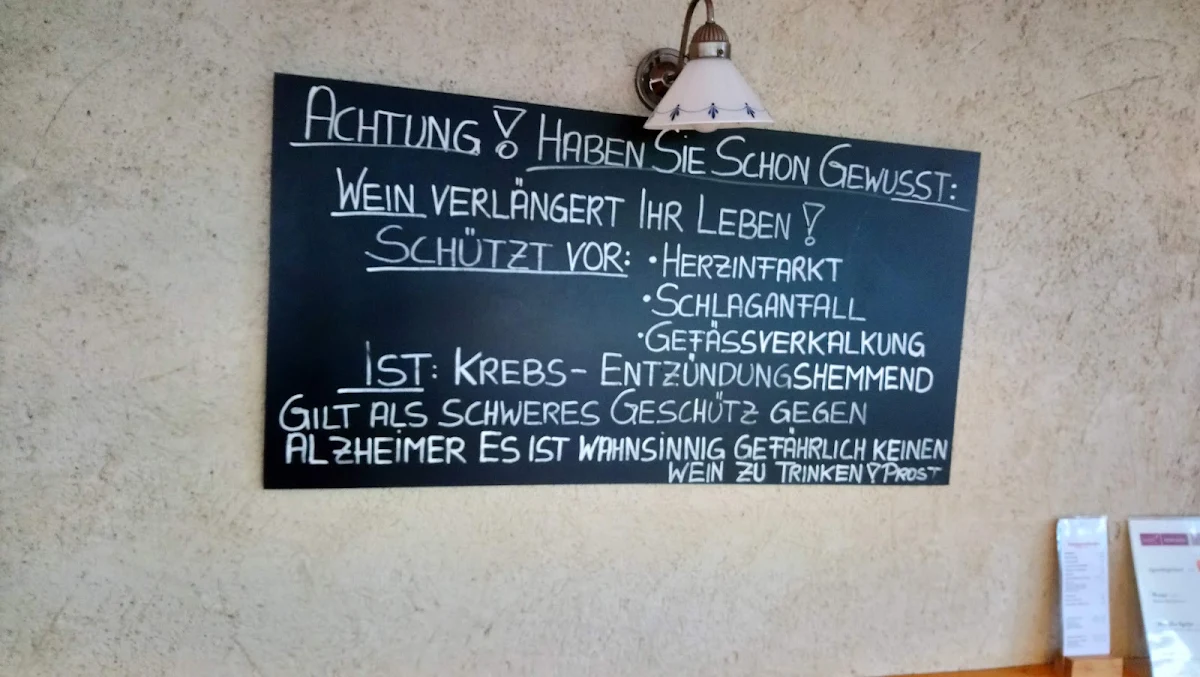 ACHTUNG! HABEN SIE SCHON GEWUSST:
WEIN VERLÄNGERT IHR LEBEN!
SCHÜTZT VOR: • HERZINFARKT
• SCHLAGANFALL
• GEFÄSSVERKALKUNG
IST: KREBS- ENTZÜNDUNGSHEMMEND
GILT ALS SCHWERES GESCHÜTZ GEGEN
ALZHEIMER ES IST WAHNSINNIG GEFÄHRLICH KEINEN
WEIN ZU TRINKEN! PROST